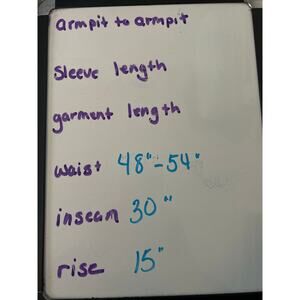 armpit to armpit
sleeve length
garment length
waist 48"-54"
inseam 30"
rise 15"